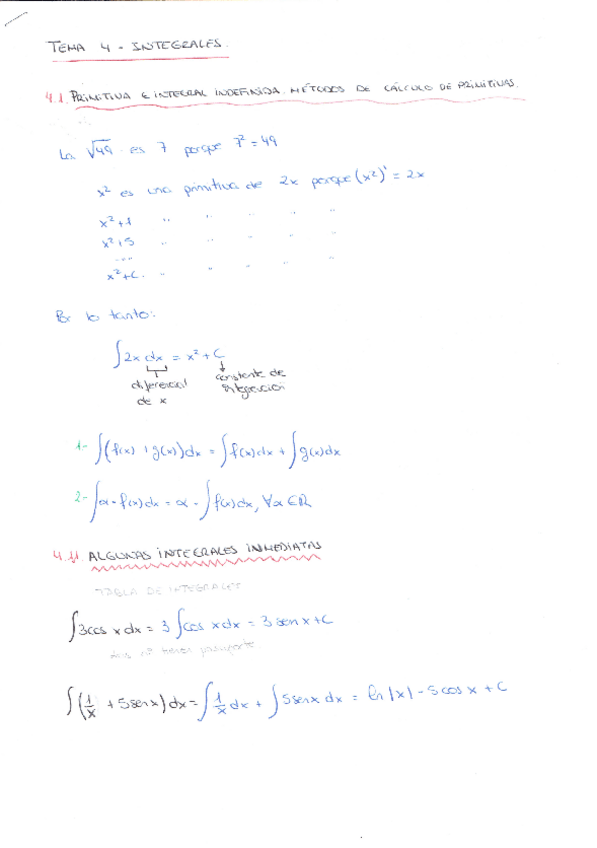 TEMA 4 - INTEGRALES.
4.1. PRIMITIVA E INTEGRAL INDEFINIDA. MÉTODOS DE CÁLCULO DE PRIMITIVAS.
La √49 es 7 porque 7² = 49
x² es una primitiva de 2x porque (x²)' = 2x
x²+1 " " " " "
x²+5 " " " " "
....
x²+C " " " " "
Por lo tanto:
∫2x dx = x² + C
diferencial de x
constante de integración
1- ∫(f(x) + g(x))dx = ∫f(x)dx + ∫g(x)dx
2- ∫α·f(x)dx = α·∫f(x)dx, ∀α∈ℝ
4.1.1. ALGUNAS INTEGRALES INMEDIATAS
TABLA DE INTEGRALES
∫3cos x dx = 3∫cos x dx = 3 sen x + C
∫(1/x + 5 sen x)dx = ∫1/x dx + ∫5 sen x dx = ln|x| - 5 cos x + C